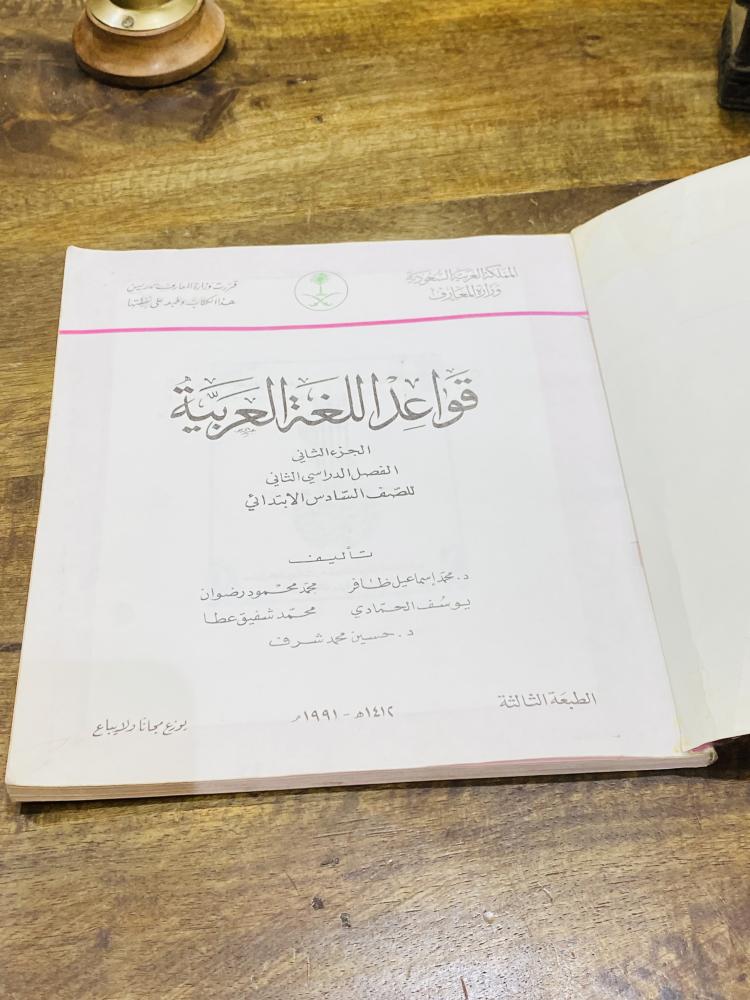 المملكة العربية السعودية
وزارة المعارف
قررت وزارة المعارف تدريس
هذا الكتاب وطبعه على نفقتها
قواعد اللغة العربية
الجزء الثاني
الفصل الدراسي الثاني
للصف السادس الابتدائي
تأليف
د. محمد إسماعيل ظافر محمد محمود رضوان
يوسف الحمادي محمد شفيق عطا
د. حسين محمد شرف
الطبعة الثالثة
١٤١٢هـ - ١٩٩١م
يوزع مجانا ولا يباع